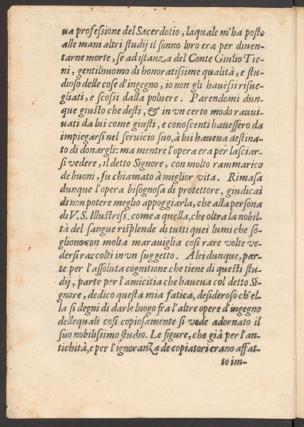 ua professione del Sacerdotio, laquale m'ha posto
alle mani altri studij il sonno loro era per diuen-
tarne morte, se ad istanza del Conte Giulio Tie-
ni, gentilhuomo di honoratissime qualità, e stu-
dioso delle cose d'ingegno, io non gli hauessi risue-
gliati, e scossi dalla poluere. Parendomi dun-
que giusto che desti, & in un certo modo rauui-
uati da lui come giusti, e conoscenti hauessero da
impiegarsi nel seruicio suo, à lui haueua destina-
to di donargli: ma mentre l'opera era per lasciar-
si vedere, il detto Signore, con molto rammarico
de buoni, fu chiamato à miglior vita. Rimasa
dunque l'opera bisognosa di protettore, giudicai
di non potere meglio appoggiarla, che alla persona
di V. S. Illustriss. come a quella, che oltra la nobil-
tà del sangue risplende di tutti quei lumi che so-
gliono con molta marauiglia così rare volte ve-
dersi raccolti in un suggetto. A lei dunque, par-
te per l'assoluta cognitione che tiene di questi stu-
dij, parte per l'amicitia che haueua col detto Si-
gnore, dedico questa mia fatica, desideroso ch'el-
la si degni di darle luogo fra l'altre opere d'ingegno
delle quali così copiosamente si vede adornato il
suo nobilissimo studio. Le figure, che già per l'an-
tichità, e per l'ignoranza de copiatori erano affat-
to im-